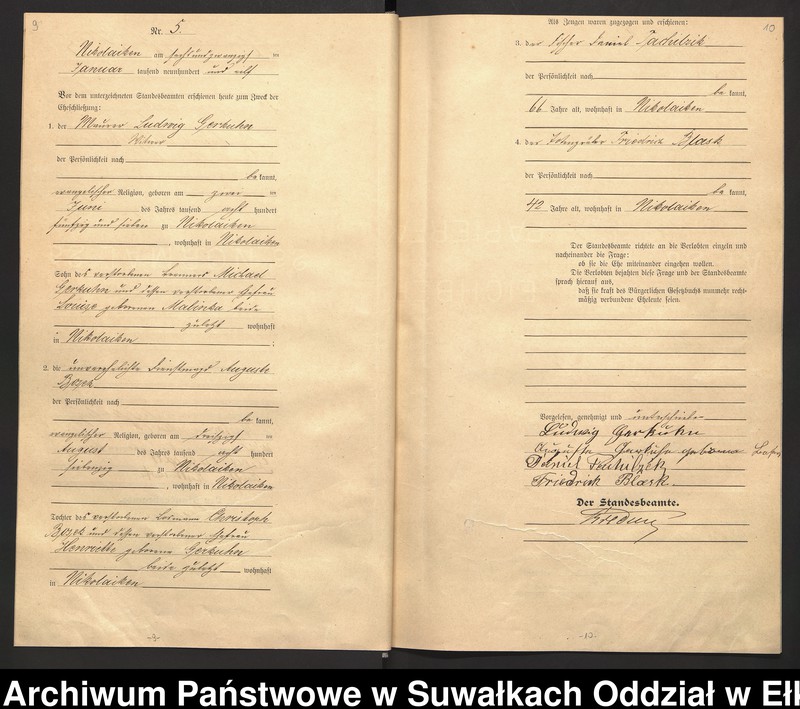 9
Nr. 5.
Nikolaiken am sechsundzwanzigsten
Januar tausend neunhundert und elf
Vor dem unterzeichneten Standesbeamten erschienen heute zum Zweck der
Eheschließung:
1. der Maurer Ludwig Gerkuhn
Witwer
der Persönlichkeit nach
be kannt,
evangelischer Religion, geboren am zwei
Juni des Jahres tausend acht hundert
fünfzig und sieben zu Nikolaiken
, wohnhaft in Nikolaiken
Sohn des verstorbenen Michael
Gerkuhn und dessen verstorbener Ehefrau
Louise geborenen Malinka beide
zuletzt wohnhaft
in Nikolaiken ;
2. die unverehelichte Dienstmagd Auguste
der Persönlichkeit nach
be kannt,
evangelischer Religion, geboren am dreißigst
August des Jahres tausend acht hundert
siebenzig zu Nikolaiken
, wohnhaft in Nikolaiken
Tochter des verstorbenen Losmann Christoph
und dessen verstorbener Ehefrau
Henriette geborene Gerkuhn
beide zuletzt wohnhaft
in Nikolaiken
-9-
10
Als Zeugen waren zugezogen und erschienen:
3. der Daniel
der Persönlichkeit nach
be kannt,
66 Jahre alt, wohnhaft in Nikolaiken
4. der Friedrich Blask
der Persönlichkeit nach
be kannt,
42 Jahre alt, wohnhaft in Nikolaiken
Der Standesbeamte richtete an die Verlobten einzeln und
nacheinander die Frage:
ob sie die Ehe miteinander eingehen wollen.
Die Verlobten bejahten diese Frage und der Standesbeamte
sprach hierauf aus,
daß sie kraft des Bürgerlichen Gesetzbuchs nunmehr recht-
mäßig verbundene Eheleute seien.
Vorgelesen, genehmigt und unterschrieben
Ludwig Gerkuhn
Auguste geborene
Daniel
Friedrich Blask
Der Standesbeamte.
-10-
Archiwum Państwowe w Suwałkach Oddział w Ełk